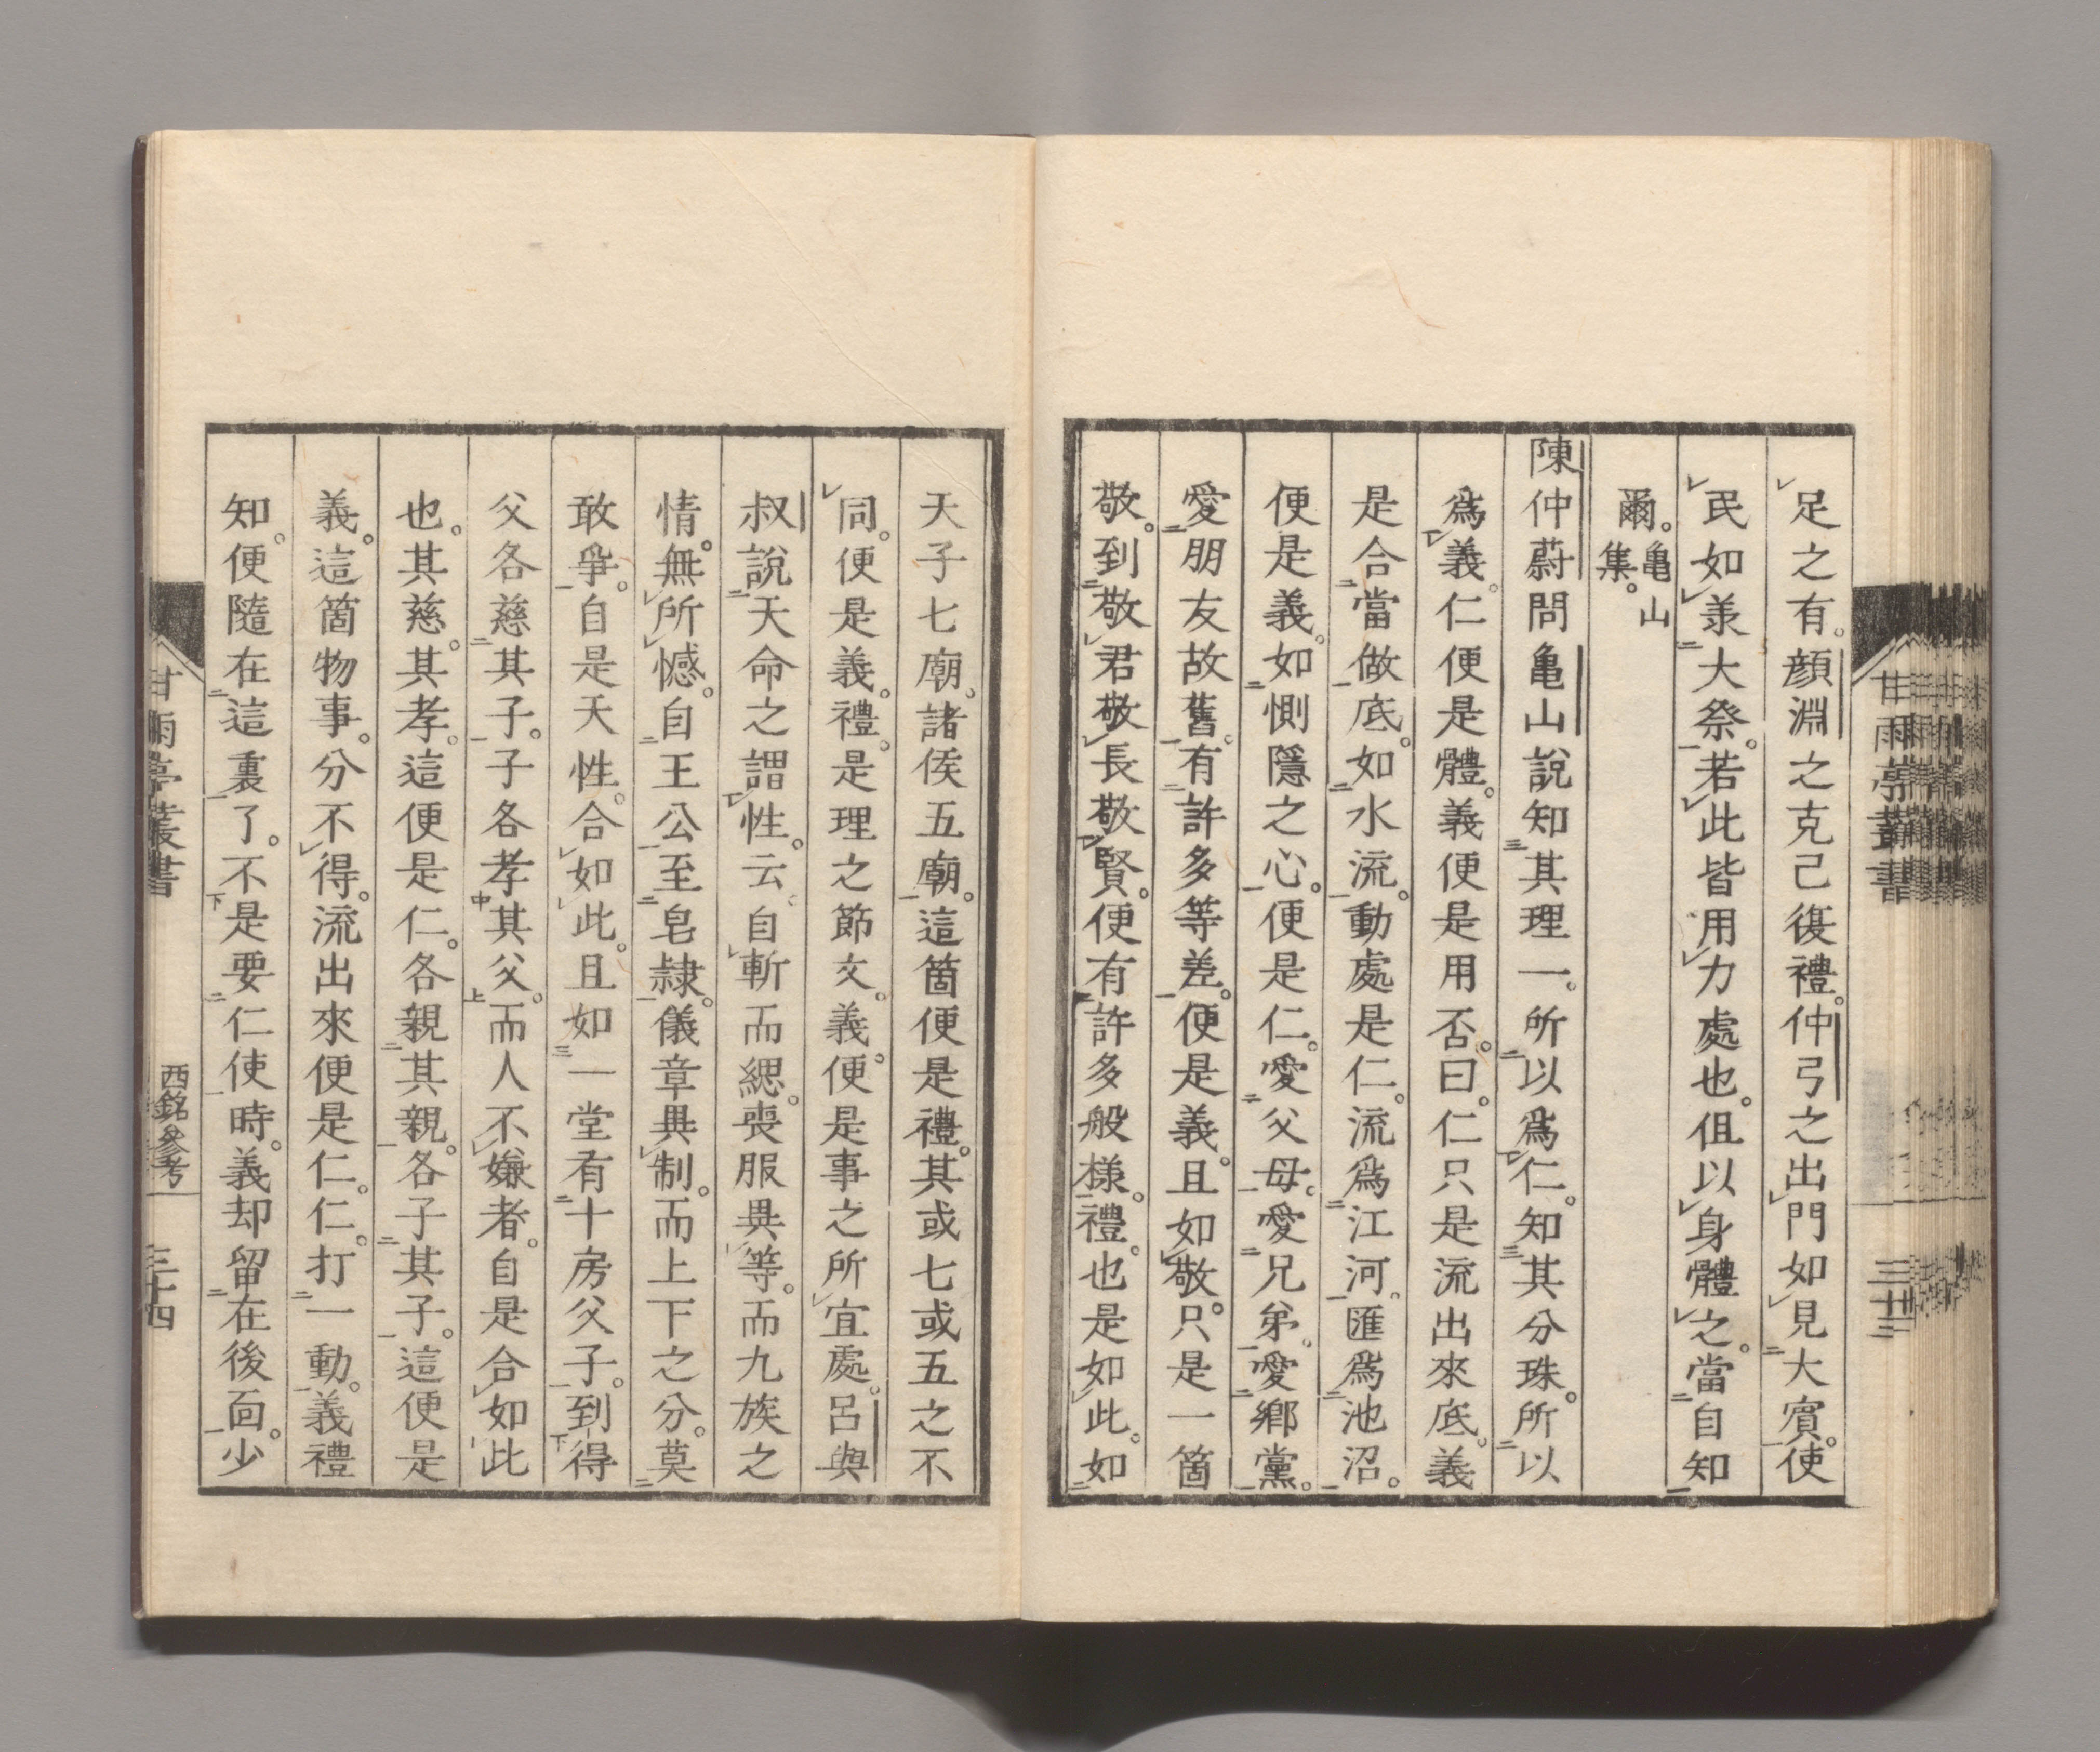 足之有。顔淵之克己復禮。仲弓之出門如見大賓。使
民如羕大祭。若此皆用力處也。但以身體之。當自知
爾。亀山集。
陳仲蔚問亀山說知其理一。所以爲仁。知其分殊。所以
爲義。仁便是體。義便是用否。曰。仁只是流出來底。義
是合當做底。如水流。動處是仁。流爲江河。匯爲池沼。
便是義。如惻隱之心。便是仁。愛父母。愛兄弟。愛鄉黨。
愛朋友故舊。有許多等差。便是義。且如敬。只是一箇
敬。到敬君敬長敬賢。便有許多般樣。禮。也是如此。如
甘雨亭叢書
三十三
天子七廟。諸侯五廟。這箇便是禮。其或七或五之不
同。便是義。禮。是理之節文。義。便是事之所宜處。呂與
叔說天命之謂性。云。自斬而緦。喪服異等。而九族之
情。無所憾。自王公至皂隸。儀章異制。而上下之分。莫
敢爭。自是天性。合如此。且如一堂有十房父子。到得
父各慈其子。子各孝其父。而人不嫌者。自是合如此
也。其慈。其孝。這便是仁。各親其親。各子其子。這便是
義。這箇物事。分不得。流出來便是仁。仁。打一動。義禮
知。便隨在這裏了。不是要仁使時。義却留在後面。少
甘雨亭叢書
西銘參考
三十四